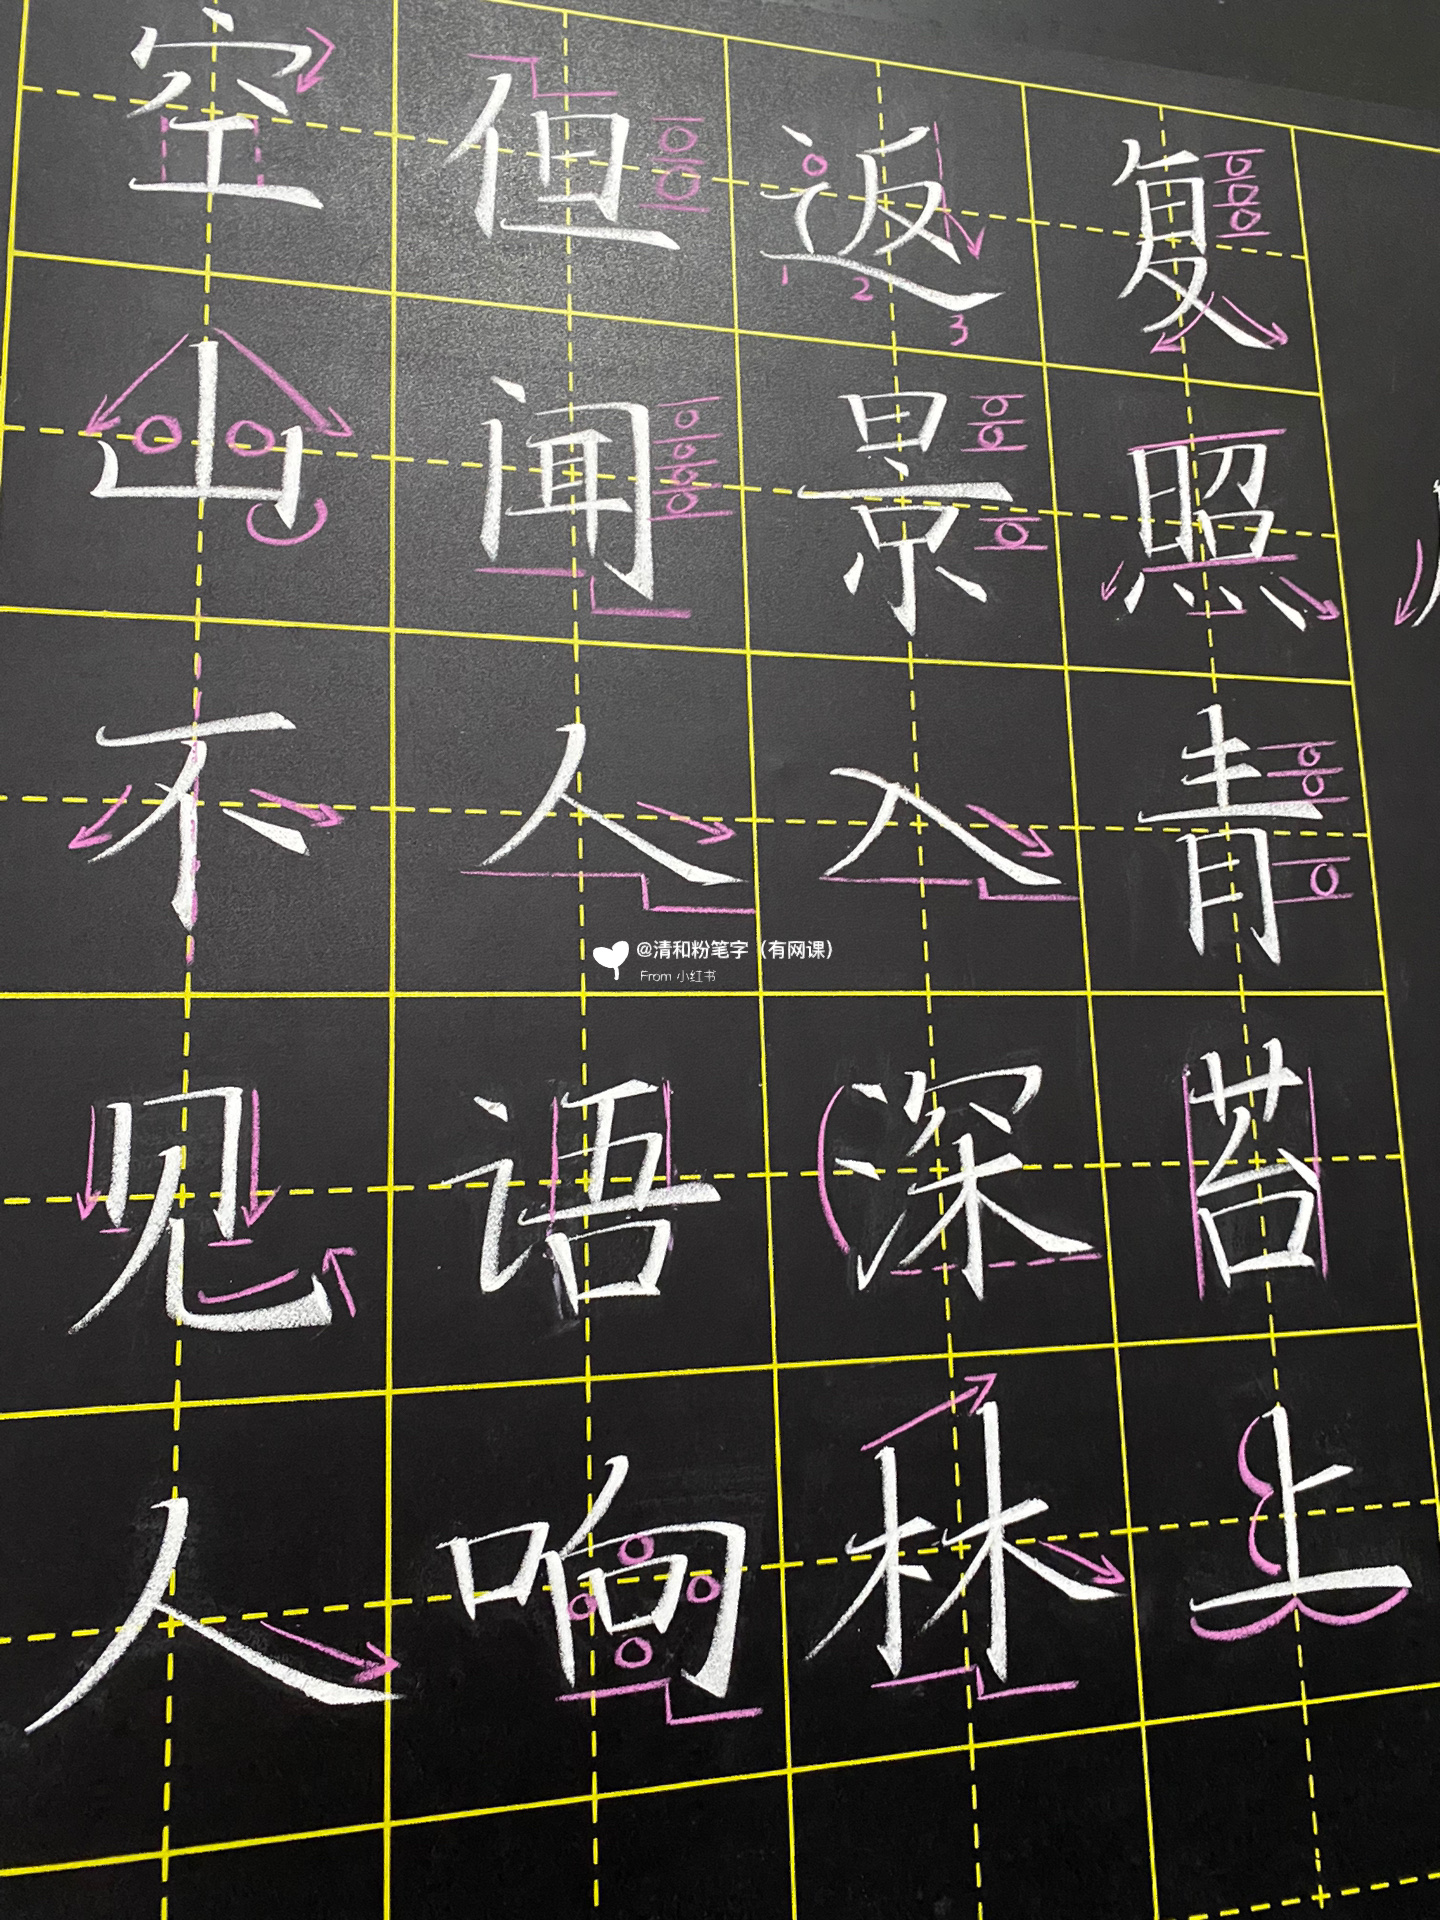 空山不见人
但闻人语响
返景入深林
1 2 3
复照青苔上
@清和粉笔字（有网课）
From 小红书